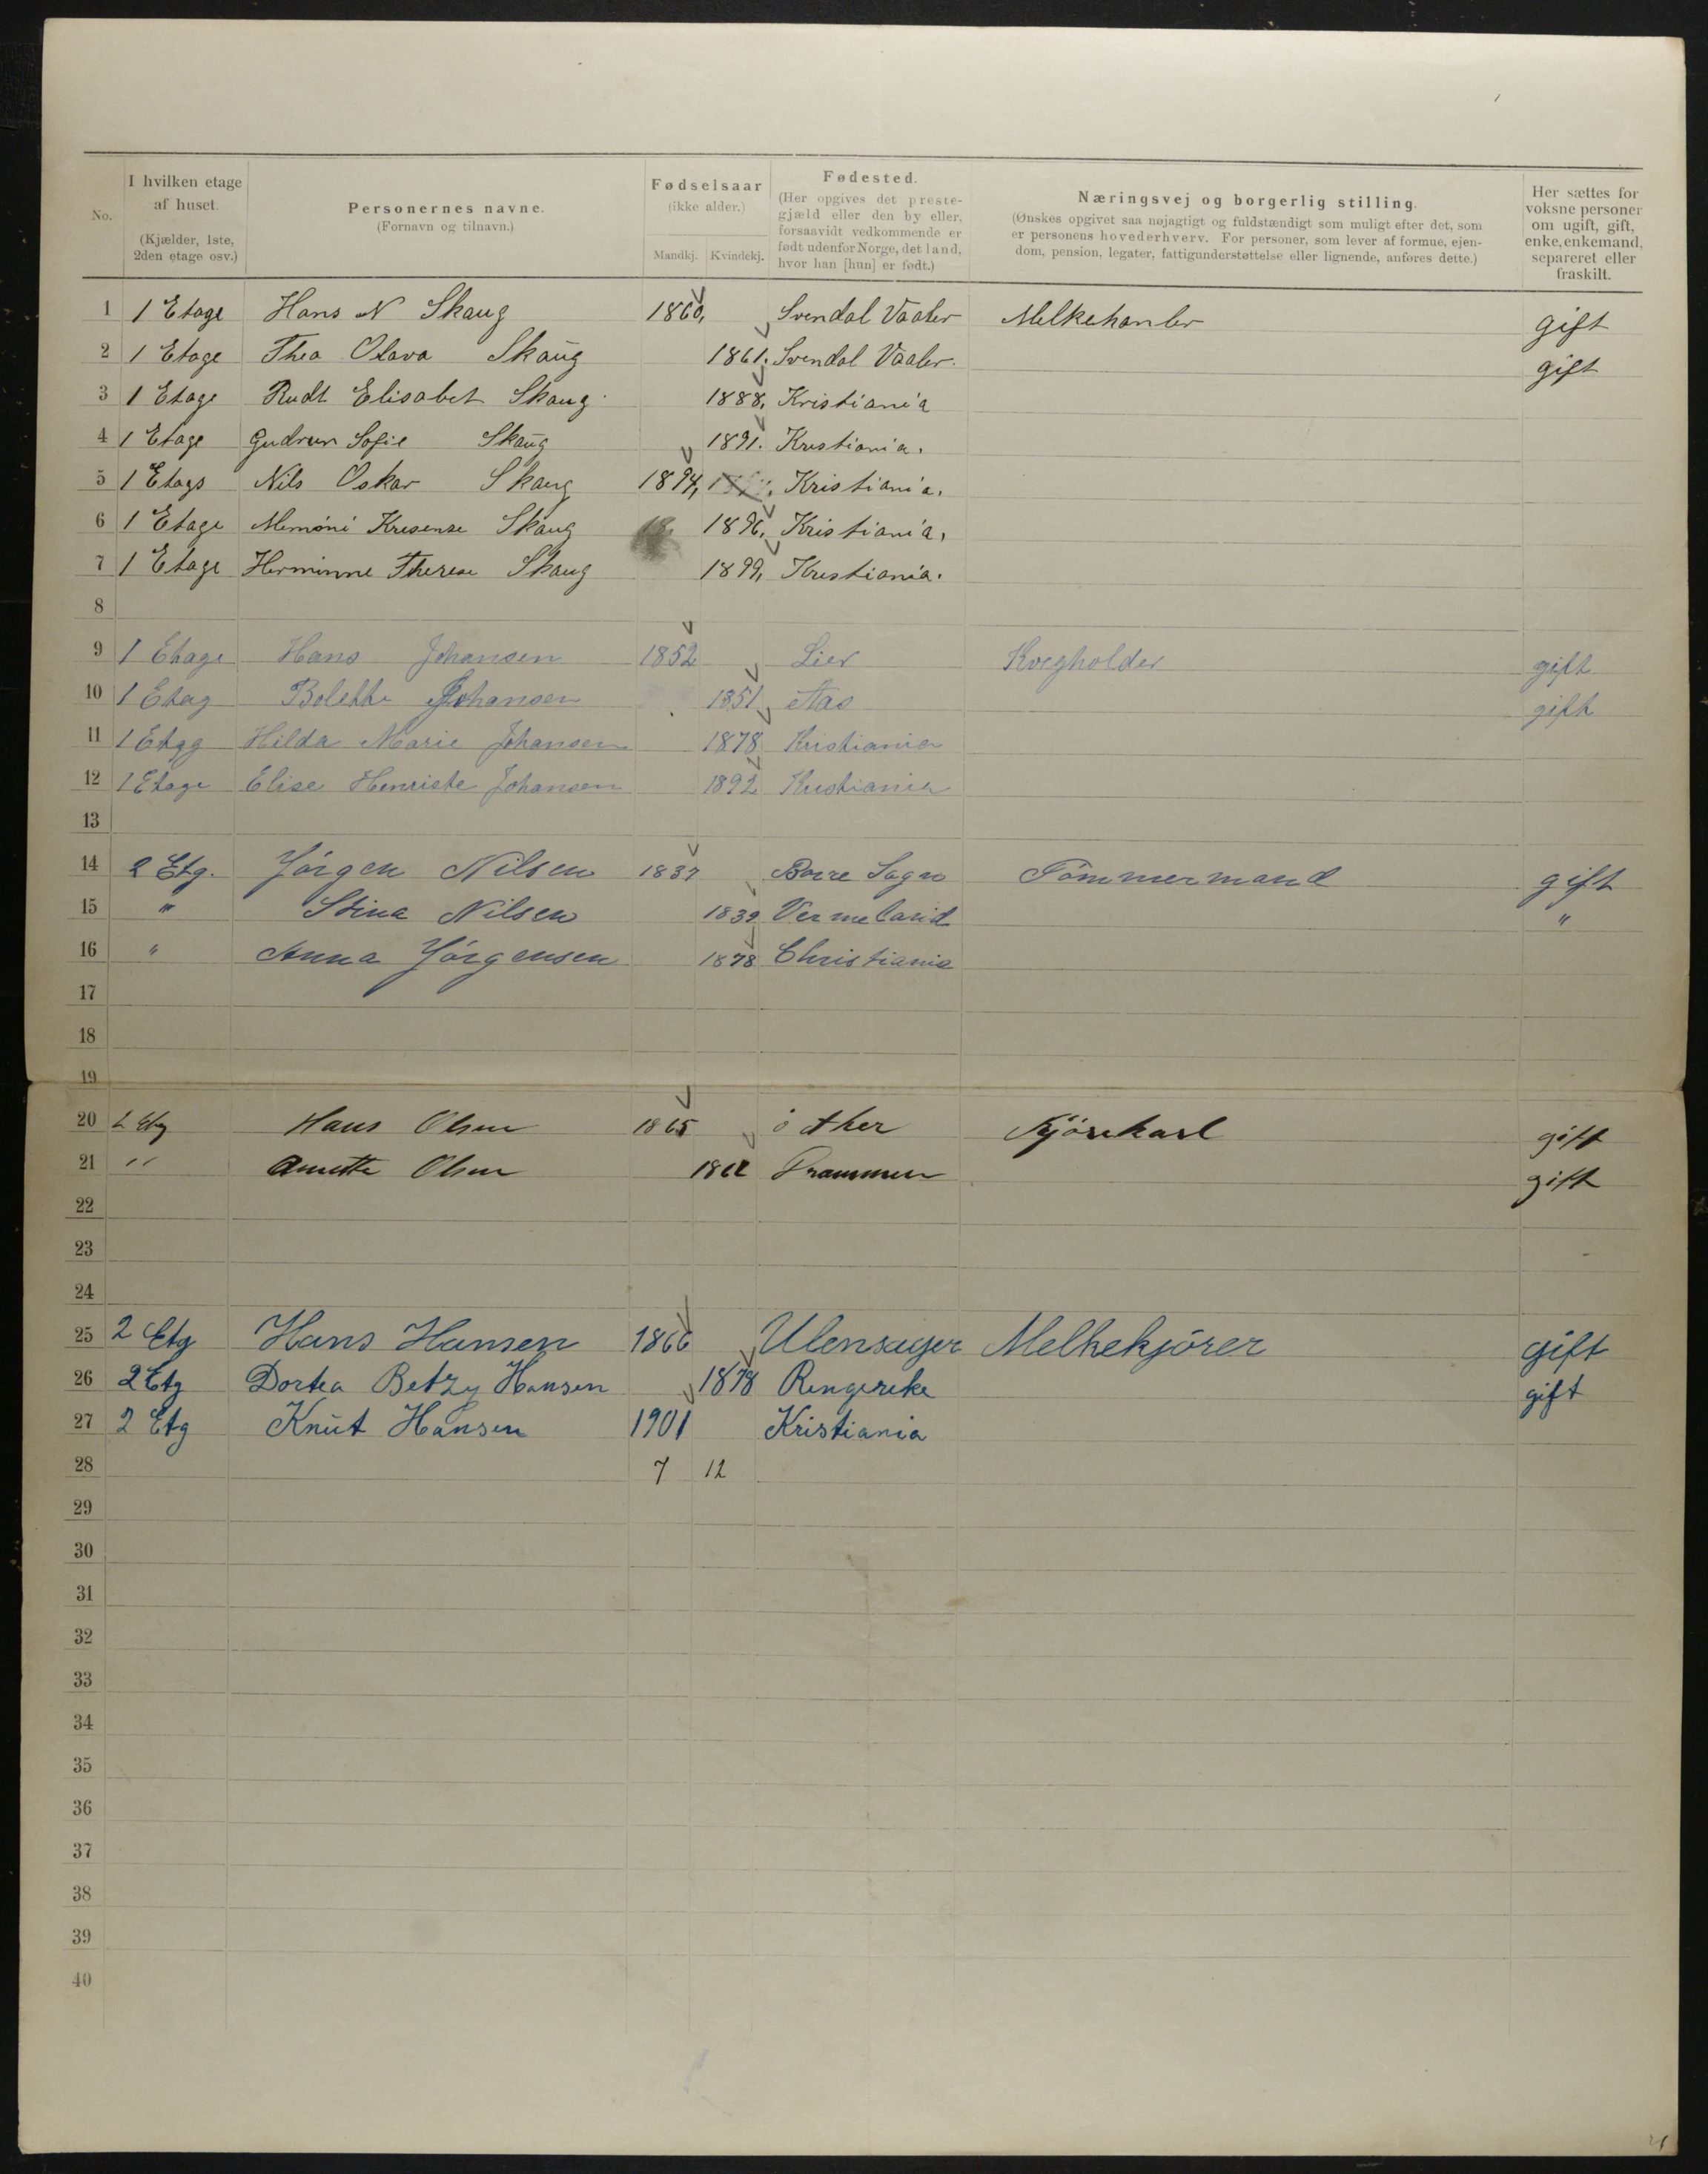 No.
I hvilken etage af huset. (Kjælder, 1ste, 2den etage osv.)
Personernes navne. (Fornavn og tilnavn.)
Fødselsaar (ikke alder.) Mandkj. Kvindekj.
Fødested. (Her opgives det prestegjæld eller den by eller, forsaavidt vedkommende er født udenfor Norge, det land, hvor han [hun] er født.)
Næringsvej og borgerlig stilling. (Ønskes opgivet saa nøjagtigt og fuldstændigt som muligt efter det, som er personens hovederhverv. For personer, som lever af formue, ejendom, pension, legater, fattigunderstøttelse eller lignende, anføres dette.)
Her sættes for voksne personer om ugift, gift, enke, enkemand, separeret eller fraskilt.
1 1 Etage Hans N Skaug 1860, Svendal Vaaler Melkehanler gift
2 1 Etage Thea Olava Skaug 1861. Svendal Vaaler. gift
3 1 Etage Rudt Elisabet Skaug 1888, Kristiania
4 1 Etage Gudrun Sofie Skaug 1891. Kristiania.
5 1 Etags Nils Oskar Skaug 1894, Kristiania.
6 1 Etage Kresense Skaug 1896, Kristiania,
7 1 Etage Herminne Therese Skaug 1899, Kristiania.
8
9 1 Etage Hans Johansen 1852 Lier Kvegholder gift
10 1 Etag Bolette Johansen 1851 Aas gift
11 1 Etgg Hilda Marie Johansen 1878 Kristiania
12 1 Etage Elise Henriete Johansen 1892 Kristiania
13
14 2 Etg. Jörgen Nilsen 1837 Borre Sogn Tömmermand gift
15 " Stina Nilsen 1839 Vermeland "
16 " Anna Jörgensen 1878 Christiania
17
18
19
20 2 Etg Hans Olsen 1865 Kjörekarl gift
21 " Anette Olsen Drammen gift
22
23
24
25 2 Etg Hans Hansen 1866 Ulensager Melkekjörer gift
26 2 Etg Dortea Betzy Hansen 1878 Ringerike gift
27 2 Etg Knut Hansen 1901 Kristiania
28 7 12
29
30
31
32
33
34
35
36
37
38
39
40